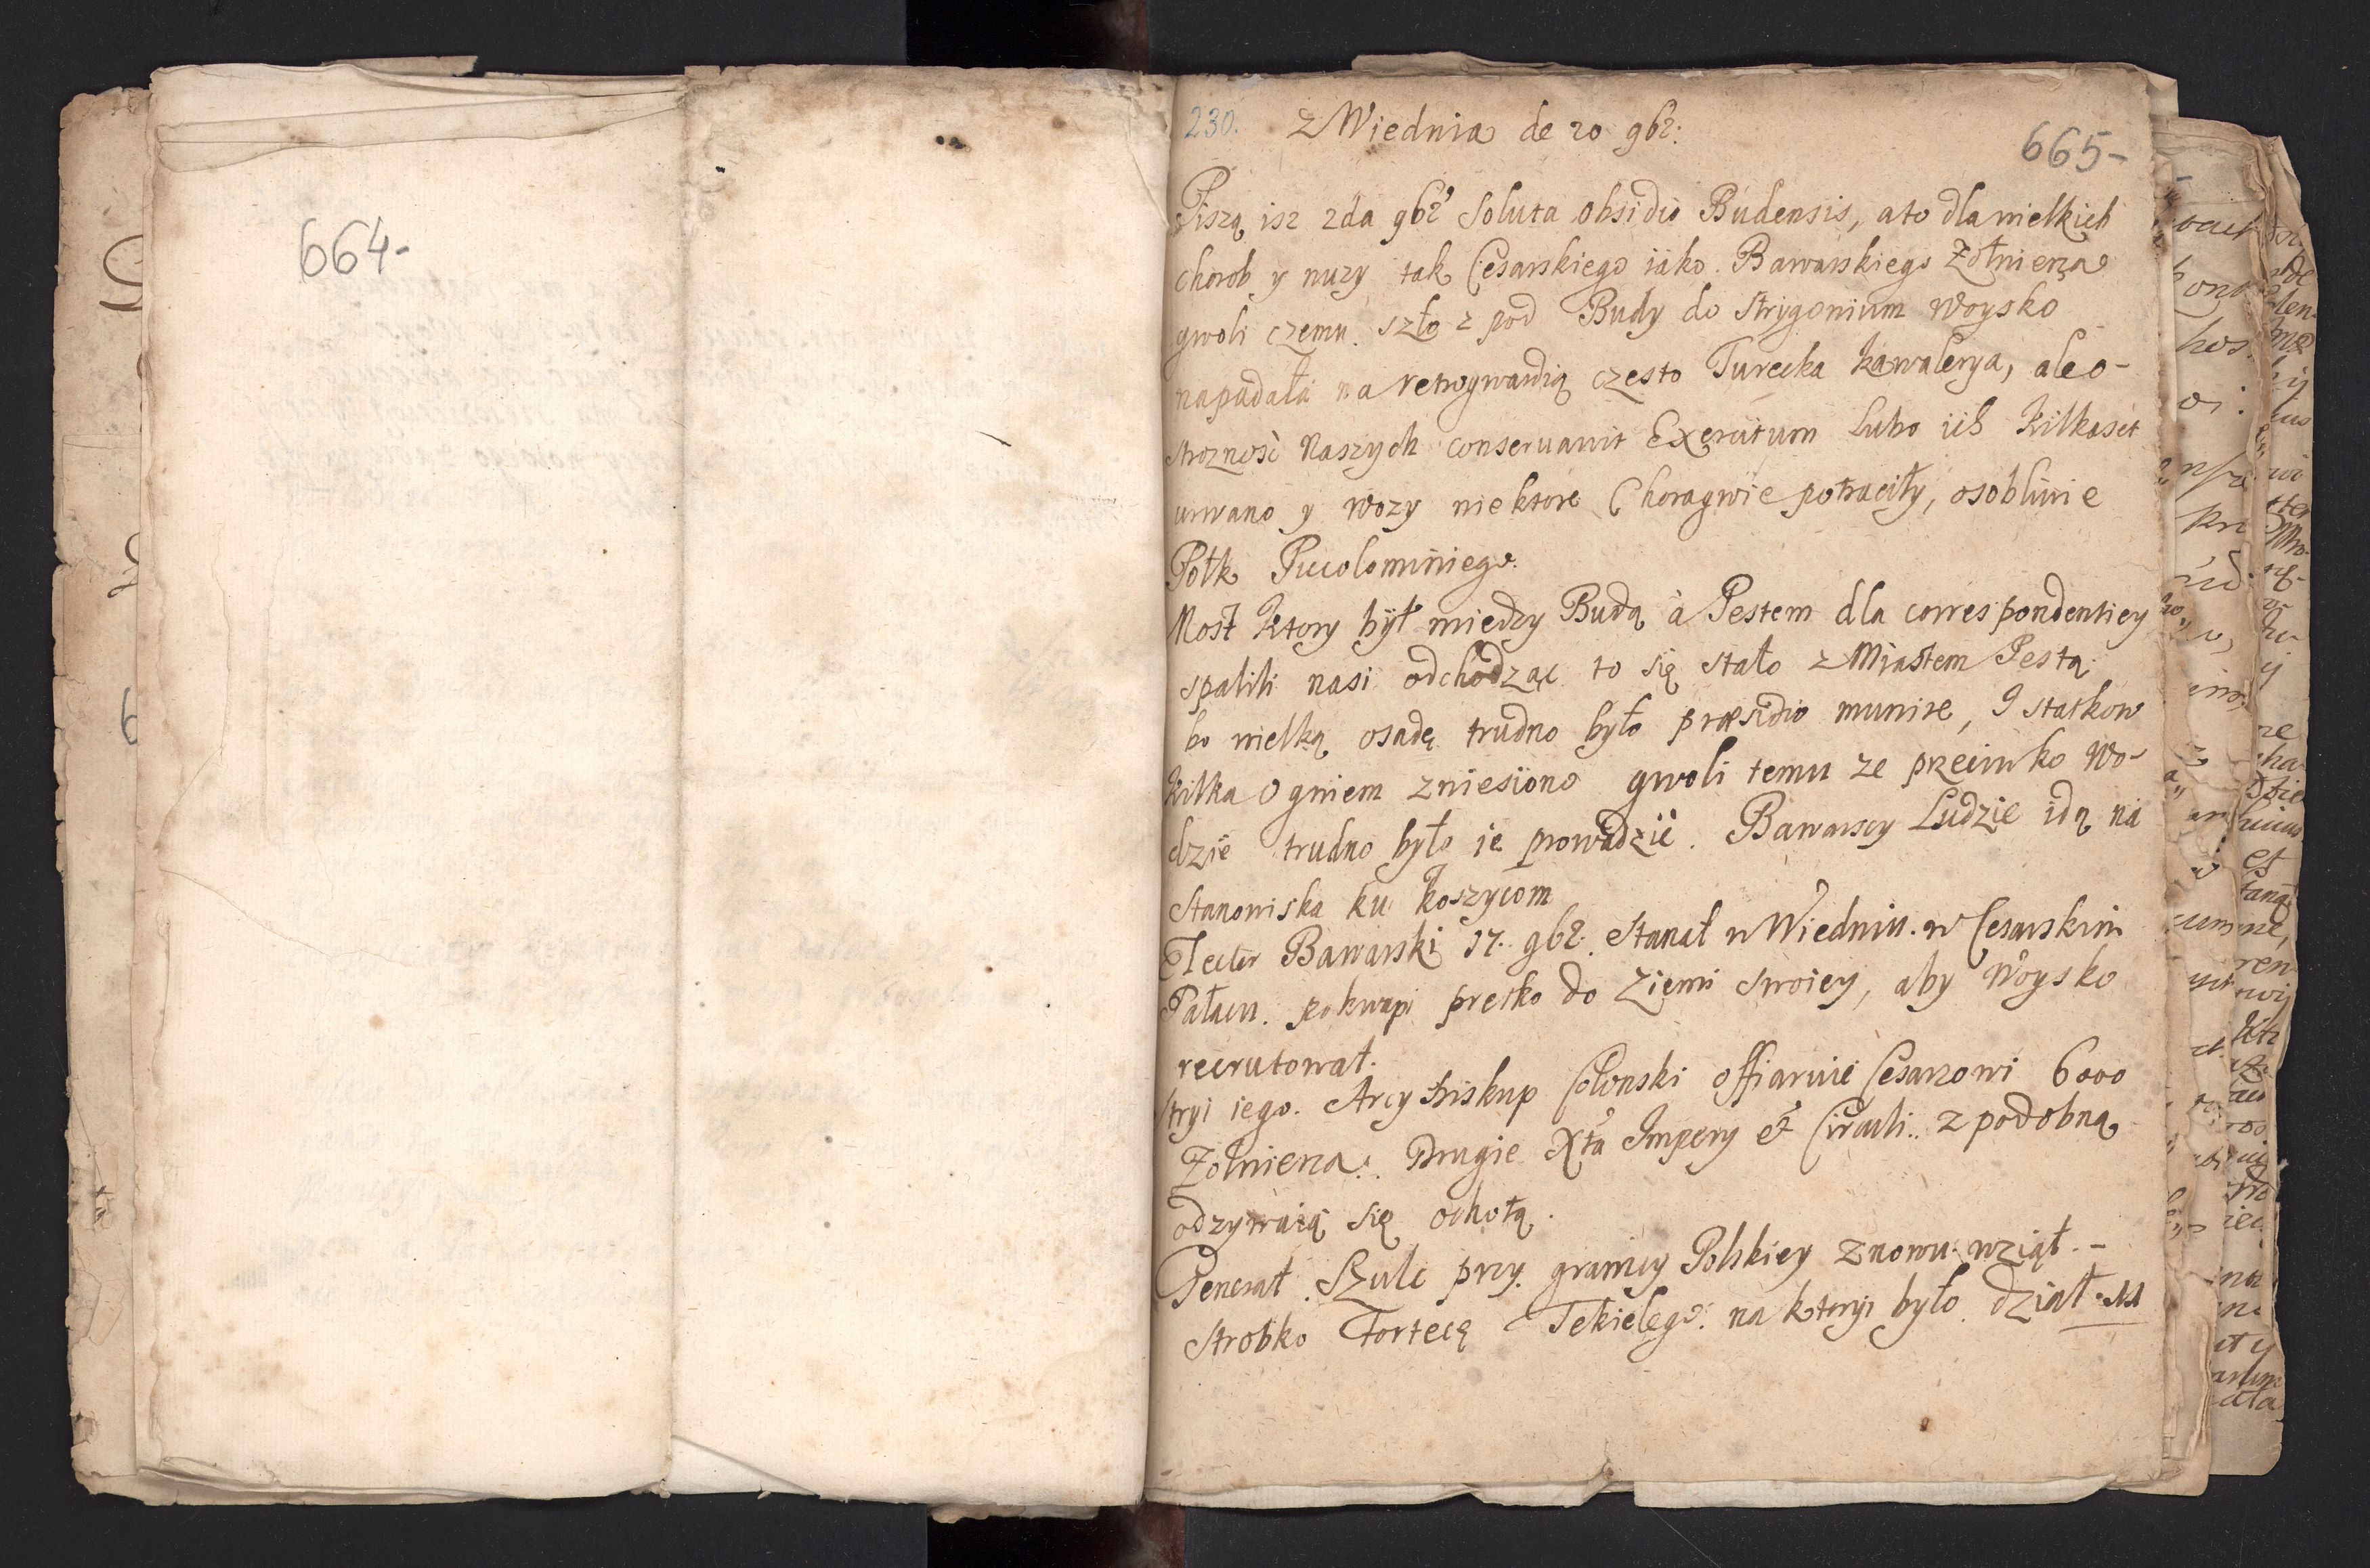 664-
230.
z Wiednia de 20 9br:
665-
Piszą isz 2da 9br Soluta obsidio Budensis, a to dla wielkich
chorob y nuzy tak Cesarskiego iako Bawarskiego Zołnierza
gwoli czemu szło z pod Budy do Strygonium Woysko
napadała na retrogwardią często Turecka kawalerya, ale o-
stroznosc Naszych conseruauit Exercitum Lubo ich kilkaset
urwano y wozy niektore Choragwie potraciły, osobliwie
Połk Piccolominiego.
Most ktory był miedzy Budą a Pestem dla correspondentiey
spalili nasi odchodząc to się stało z Miastem Pestą
bo wielką osadę trudno było præsidio munire, 9 statkow
kilka Ogniem zniesiono gwoli temu ze przeciwko Wo-
dzie trudno było ie prowadzić. Bawarscy Ludzie idą na
Stanowiska ku koszycom
Elector Bawarski 17. 9br. Stanął w Wiedniu w Cesarskim
Pałacu. pokwapi prętko do Ziemi swoiey, aby Woysko
recrutował.
Stryi iego. Arcybiskup Colonski offiaruie Cesarzowi 6000
Zołnierza. Drugie Xta Impery et Circuli z podobną
odzywaią się ochotą.
Generał Szulc przy granicy Polskiey znowu wziął. -
Strobko Fortecę Tekielego. na ktoryi było dział